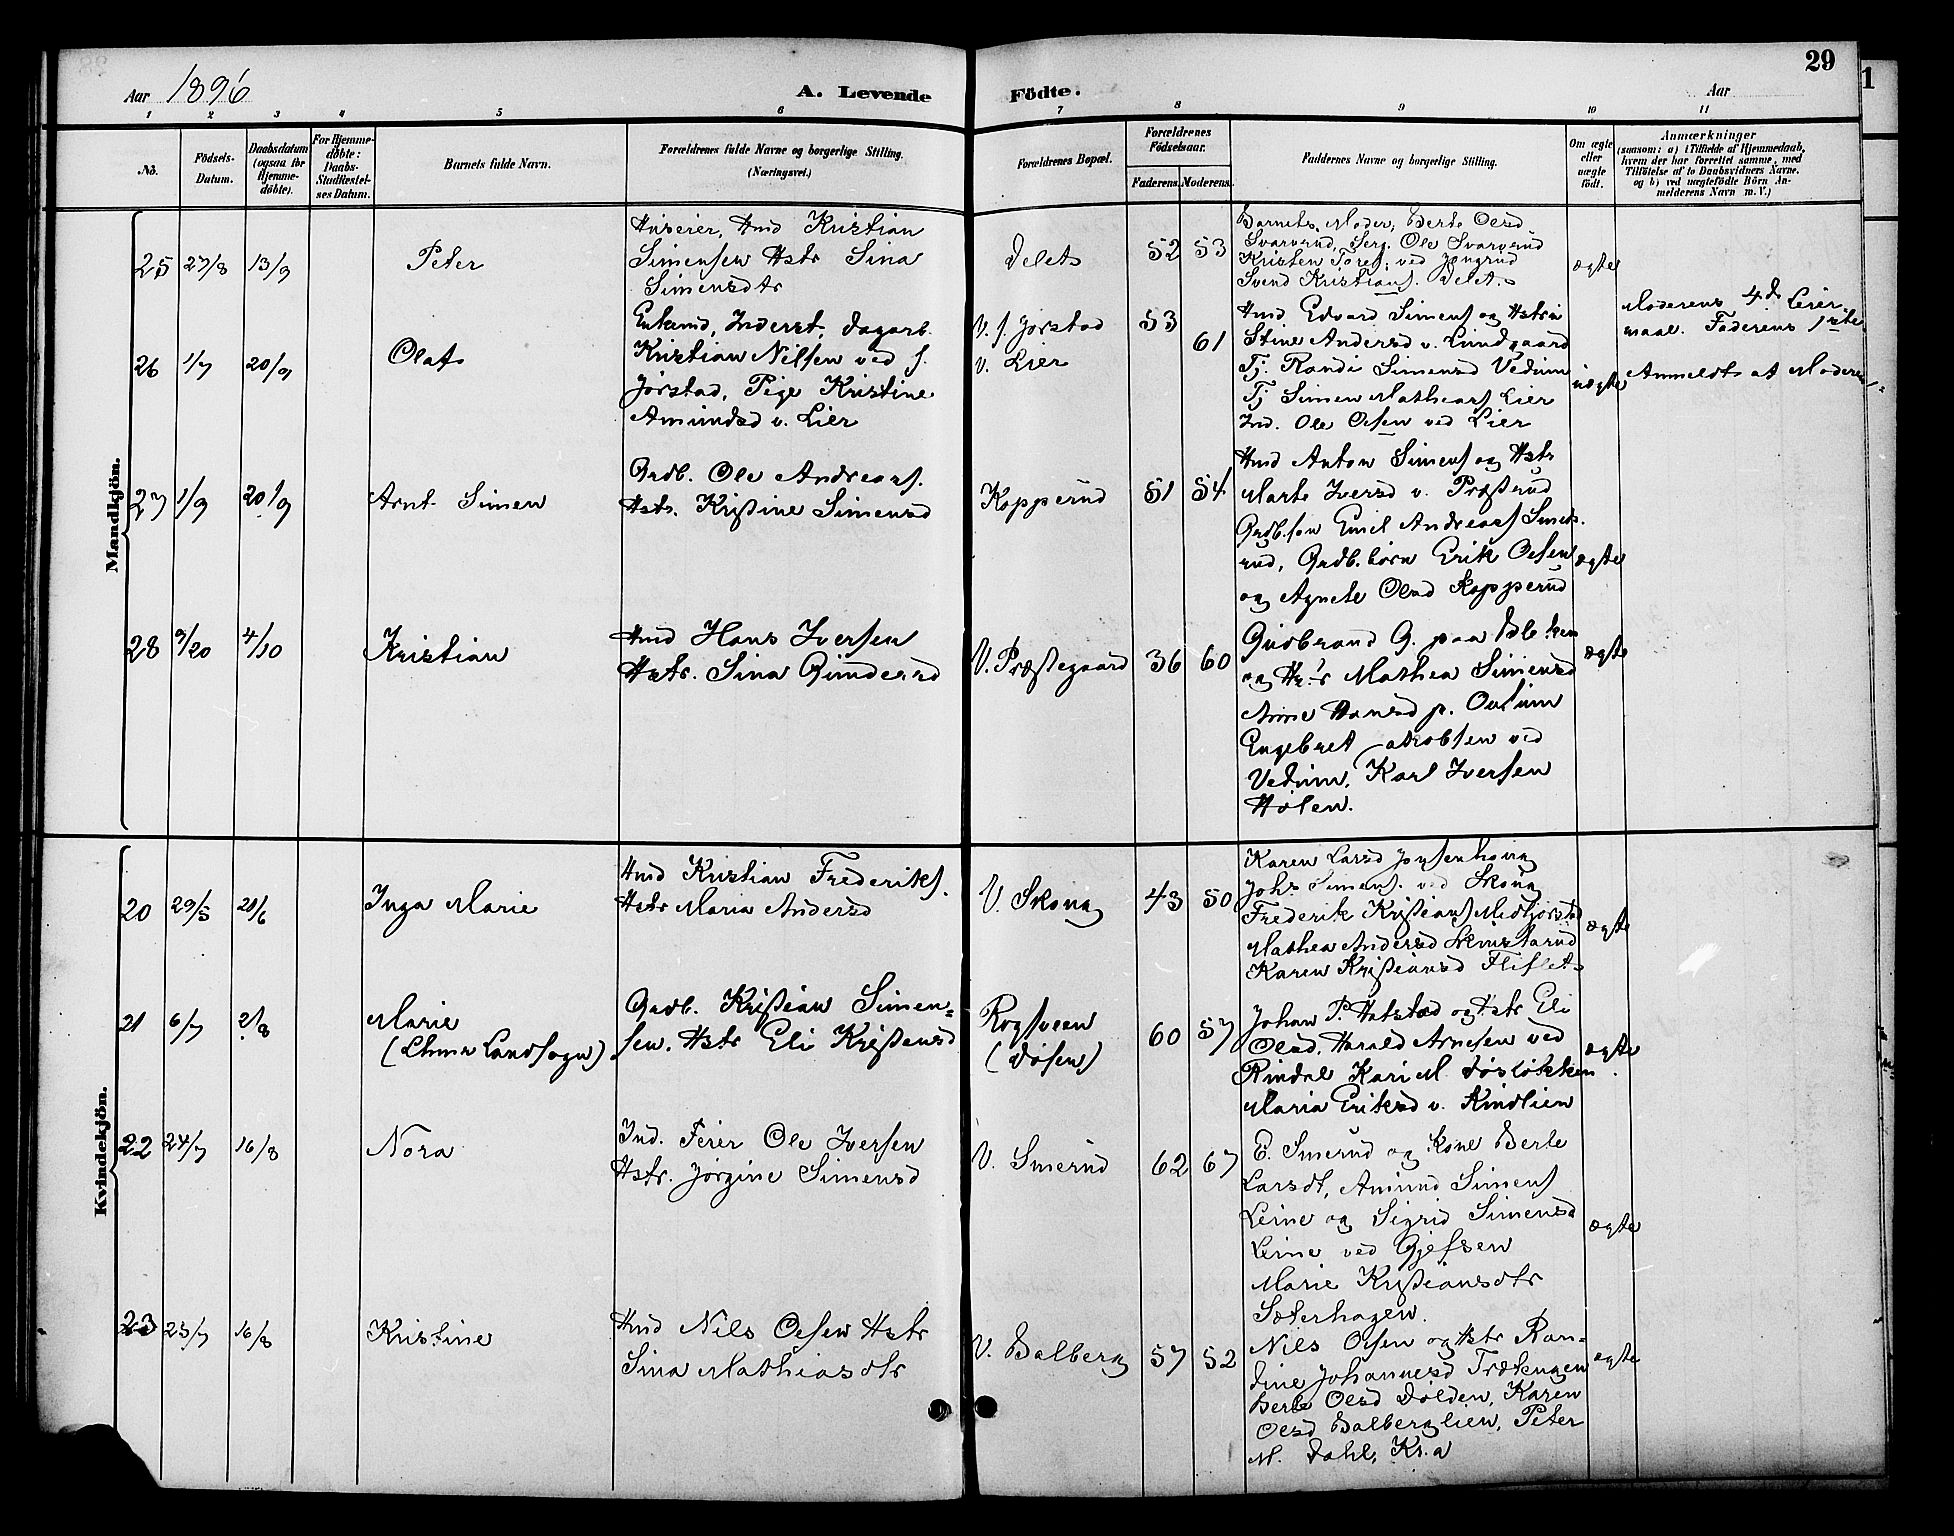 29
1
Aar 1896
A. Levende Födte.
Aar
1 2 3 4 5 6 7 8 9 10 11
No.
Födsels-
Datum.
Daabsdatum
(ogsaa for
Hjemme-
döbte).
For Hjemme-
döbte:
Daabs-
Stadfæstel-
ses Datum.
Barnets fulde Navn.
Forældrenes fulde Navne og borgerlige Stilling.
(Næringsvei.)
Forældrenes Bopæl.
Forældrenes
Födselsaar.
Faderens. Moderens.
Faddernes Navne og borgerlige Stilling.
Om ægte
eller
uægte
födt.
Anmærkninger
(saasom: a) i Tilfælde af Hjemmedaab,
hvem der har forrettet samme, med
Tilföielse af to Daabsvidners Navne,
og b) ved uægtefödte Börn An-
melderens Navn m. V.)
Mandkjön.
25 27/8 13/9
Peter
Huseier, Kristian
Simensen Hstr Sina
Simensdtr
Delets
52 53
Barnets Moder, Berte Olsd
Svarverud, Serg. Ole Svarverud
Kristen Toref. ved Jongrud
Svend Kristians. Delet
ægte
26 1/7 20/9
Olaf
Enkmd, Inderst, Dagarb.
Kristian Nilsen ved s.
Jørstad, Pige Kristine
Amundsd v. Lier
V. s. Jørstad
v. Lier
53
61
Hmd Edvard Simens og Hstru
Stine Andersd v. Lundgaard
Tj. Randi Simensd Vedum
Tj Simen Mathears Lier
Ind. Ole Olsen ved Lier
uægte
Moderens 4d Leier
maal. Faderens 1ste
Anmeldt af Moderen
27 1/9 20/9
Arnt Simen
Grdb. Ole Andreas.
Hstr. Kristine Simensd
Kopperud
51 54
Hmd Anton Simens og Hstr
Marte Iversd v. Præsterud
Grdb.søn Emil Andreas Smeds-
rud, Grdb.børn Erik Olsen
og Agnete Olsd Kopperud
ægte
28 9/20 4/10
Kristian
Hmd Hans Iversen
Hstr. Sina Gundersd
V. Præstegaard
36 60
Gudbrand G. paa
og Hstr Mathea Simensd
Anne Hansd p. Oulum
Engebret Jakobsen ved
Vedum, Karl Iversen
Holen.
ægte
Kvindekjön.
20 29/5 21/6
Inga Marie
Hmd Kristian Frederiks.
Hstr Maria Andersd
V. Skoug
43 50
Karen Larsd
Johs Simens. ved Skoug
Frederik Kristians Midtjørstad
Mathea Andersd
Karen Kristiansd Fliflet
ægte
21 6/7 2/8
Marie
(Lhmr Landsogn)
Grdb. Kristian Simen-
sen. Hstr Eli Kristensd
Rogsveen
(Døsen)
60 57
Johan P. Hatstad og Hstr Eli
Olsd. Harald Arnesen ved
Rindal Kari M. Døsløkken
Maria Eriksd v. Kindlien
ægte
22 24/7 16/8
Nora
Ind. Feier Ole Iversen
Hstr. Jørgine Simensd
V. Smerud
62 67
E. Smerud og kone Berte
Larsdt, Amund Simens
Leine og Sigrid Simensd
Leine ved Gjefsen
Marie Kristiansdtr
Sæterhagen.
ægte
23 25/7 16/8
Kristine
Hmd Nils Olsen Hstr
Sina Mathiasdtr
V. Balberg
57 52
Nils Olsen og Hstr Ran-
dine Johannesd
Berte Olsd Dølden, Karen
Olsd Balberglien, Peter
M. Dahl, Kr.a
ægte